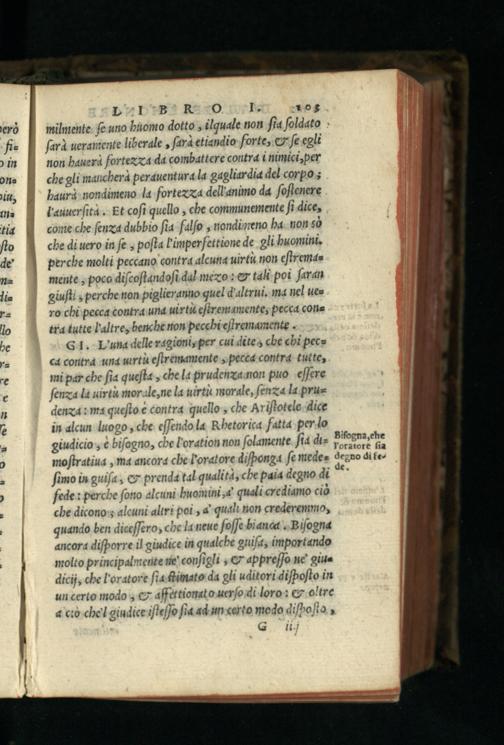 LIBRO I. 103
milmente se uno huomo dotto, ilquale non sia soldato
sarà ueramente liberale, sarà etiandio forte, & se egli
non hauerà fortezza da combattere contra i nimici, per
che gli mancherà perauentura la gagliardia del corpo;
haurà nondimeno la fortezza dell'animo da sostenere
l'auuersità. Et cosi quello, che communemente si dice,
come che senza dubbio sia falso, nondimeno ha non sò
che di uero in se, posta l'imperfettione de gli huomini.
perche molti peccano contra alcuna uirtù non estrema=
mente, poco discostandosi dal mezo: & tali poi saran
giusti, perche non piglieranno quel d'altrui. ma nel ue=
ro chi pecca contra una uirtù estremamente, pecca con=
tra tutte l'altre, benche non pecchi estremamente.
GI. L'una delle ragioni, per cui dite, che chi pec=
ca contra una uirtù estremamente, pecca contra tutte,
mi par che sia questa, che la prudenza non puo essere
senza la uirtù morale, ne la uirtù morale, senza la pru=
denza: ma questo è contra quello, che Aristotele dice
in alcun luogo, che essendo la Rhetorica fatta per lo
giudicio, è bisogno, che l'oration non solamente sia di=
mostratiua, ma ancora che l'oratore disponga se mede=
simo in guisa, & prenda tal qualità, che paia degno di
fede: perche sono alcuni huomini, a' quali crediamo ciò
che dicono; alcuni altri poi, a' quali non crederemmo,
quando ben dicessero, che la neue fosse bianca. Bisogna
ancora disporre il giudice in qualche guisa, importando
molto principalmente ne' consigli, & appresso ne' giu=
dicij, che l'oratore sia stimato da gli uditori disposto in
un certo modo, & affettionato uerso di loro: & oltre
a ciò che'l giudice istesso sia ad un certo modo disposto,
G iij
Bisogna, che
l'oratore sia
degno di fe-
de.